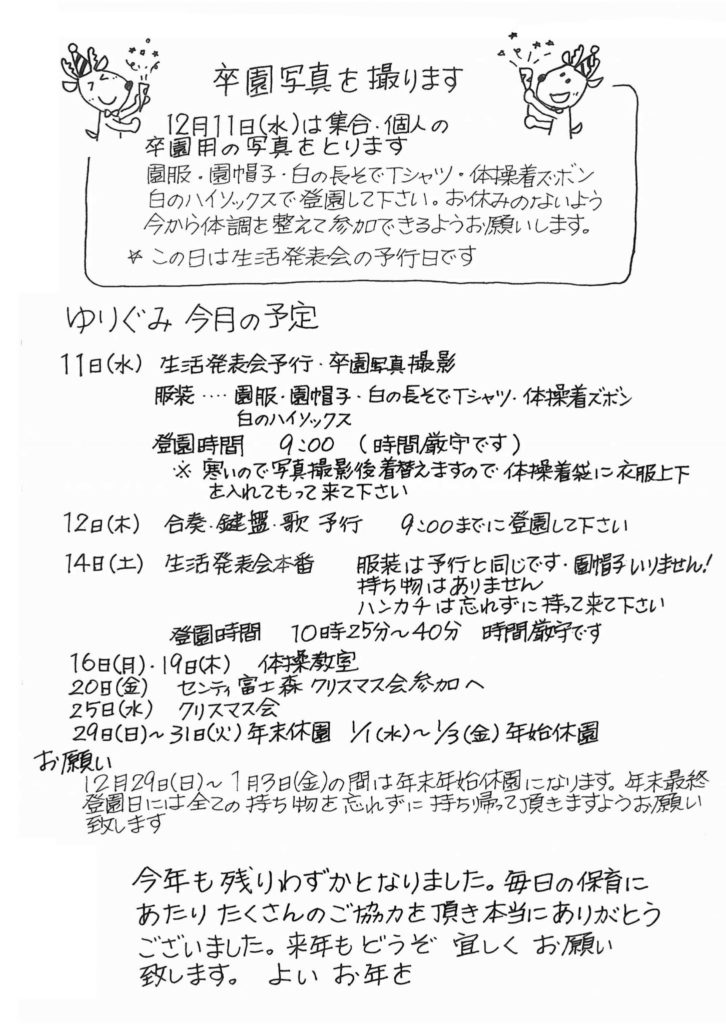 卒園写真を撮ります
12月11日(水)は集合・個人の
卒園用の写真をとります
園服・園帽子・白の長そでTシャツ・体操着ズボン
白のハイソックスで登園して下さい。お休みのないよう
今から体調を整えて参加できるようお願いします。
* この日は生活発表会の予行日です
ゆりぐみ 今月の予定
11日(水) 生活発表会予行・卒園写真撮影
服装‥‥園服・園帽子・白の長そでTシャツ・体操着ズボン
白のハイソックス
登園時間 9:00 (時間厳守です)
※ 寒いので写真撮影後着替えますので体操着袋に衣服上下
を入れてもって来て下さい
12日(木) 合奏・鍵盤・歌 予行 9:00までに登園して下さい
14日(土) 生活発表会本番 服装は予行と同じです・園帽子いりません!
持ち物はありません
ハンカチは忘れずに持って来て下さい
登園時間 10時25分〜40分 時間厳守です
16日(月)・19日(木) 体操教室
20日(金) センティ富士森クリスマス会参加へ
25日(水) クリスマス会
29日(日)〜31日(火)年末休園 1/1(水)〜1/3(金)年始休園
お願い
12月29日(日)〜1月3日(金)の間は年末年始休園になります。年末最終
登園日には全ての持ち物を忘れずに持ち帰って頂きますようお願い
致します
今年も残りわずかとなりました。毎日の保育に
あたりたくさんのご協力を頂き本当にありがとう
ございました。来年もどうぞ 宜しく お願い
致します。 よい お年を